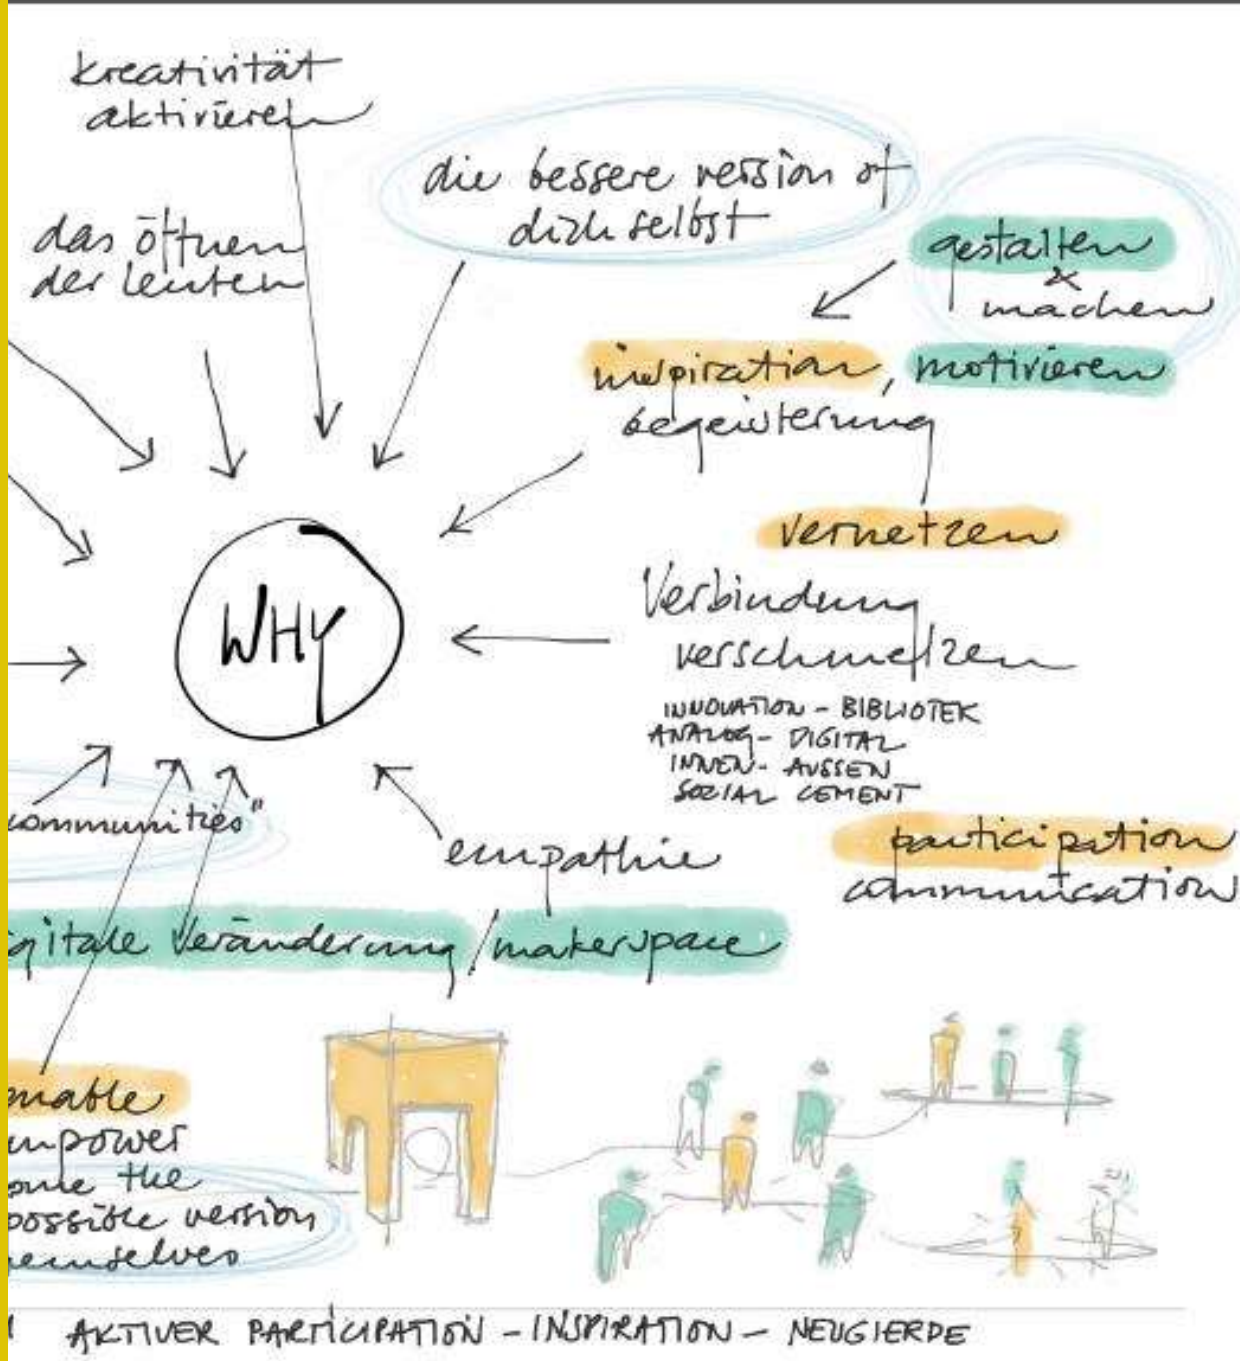 kreativität
aktivieren
die bessere version of
dich selbst
das öffnen
der leuten
gestalten
&
machen
inspiration, motivieren
begeisterung
vernetzen
WHY
Verbindung
verschmelzen
INNOVATION - BIBLIOTEK
ANALOG - DIGITAL
INNEN - AUSSEN
SOZIAL CEMENT
communities"
empathie
participation
communication
igitale Veränderung / makerspace
enable
empower
the
possible version
themselves
AKTIVER PARTICIPATION - INSPIRATION - NEUGIERDE